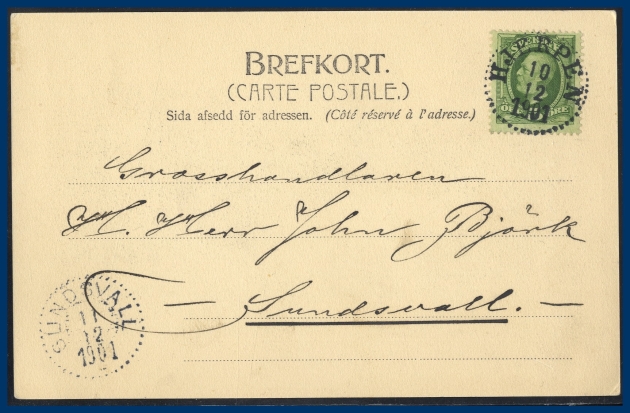 BREFKORT.
(CARTE POSTALE.)
Sida afsedd för adressen. (Côté réservé à l'adresse.)
HJERPEN
10
12
1901
Grosshandlaren
H. Herr John Björk
— Sundsvall. —
SUNDSVALL
11
12
1901